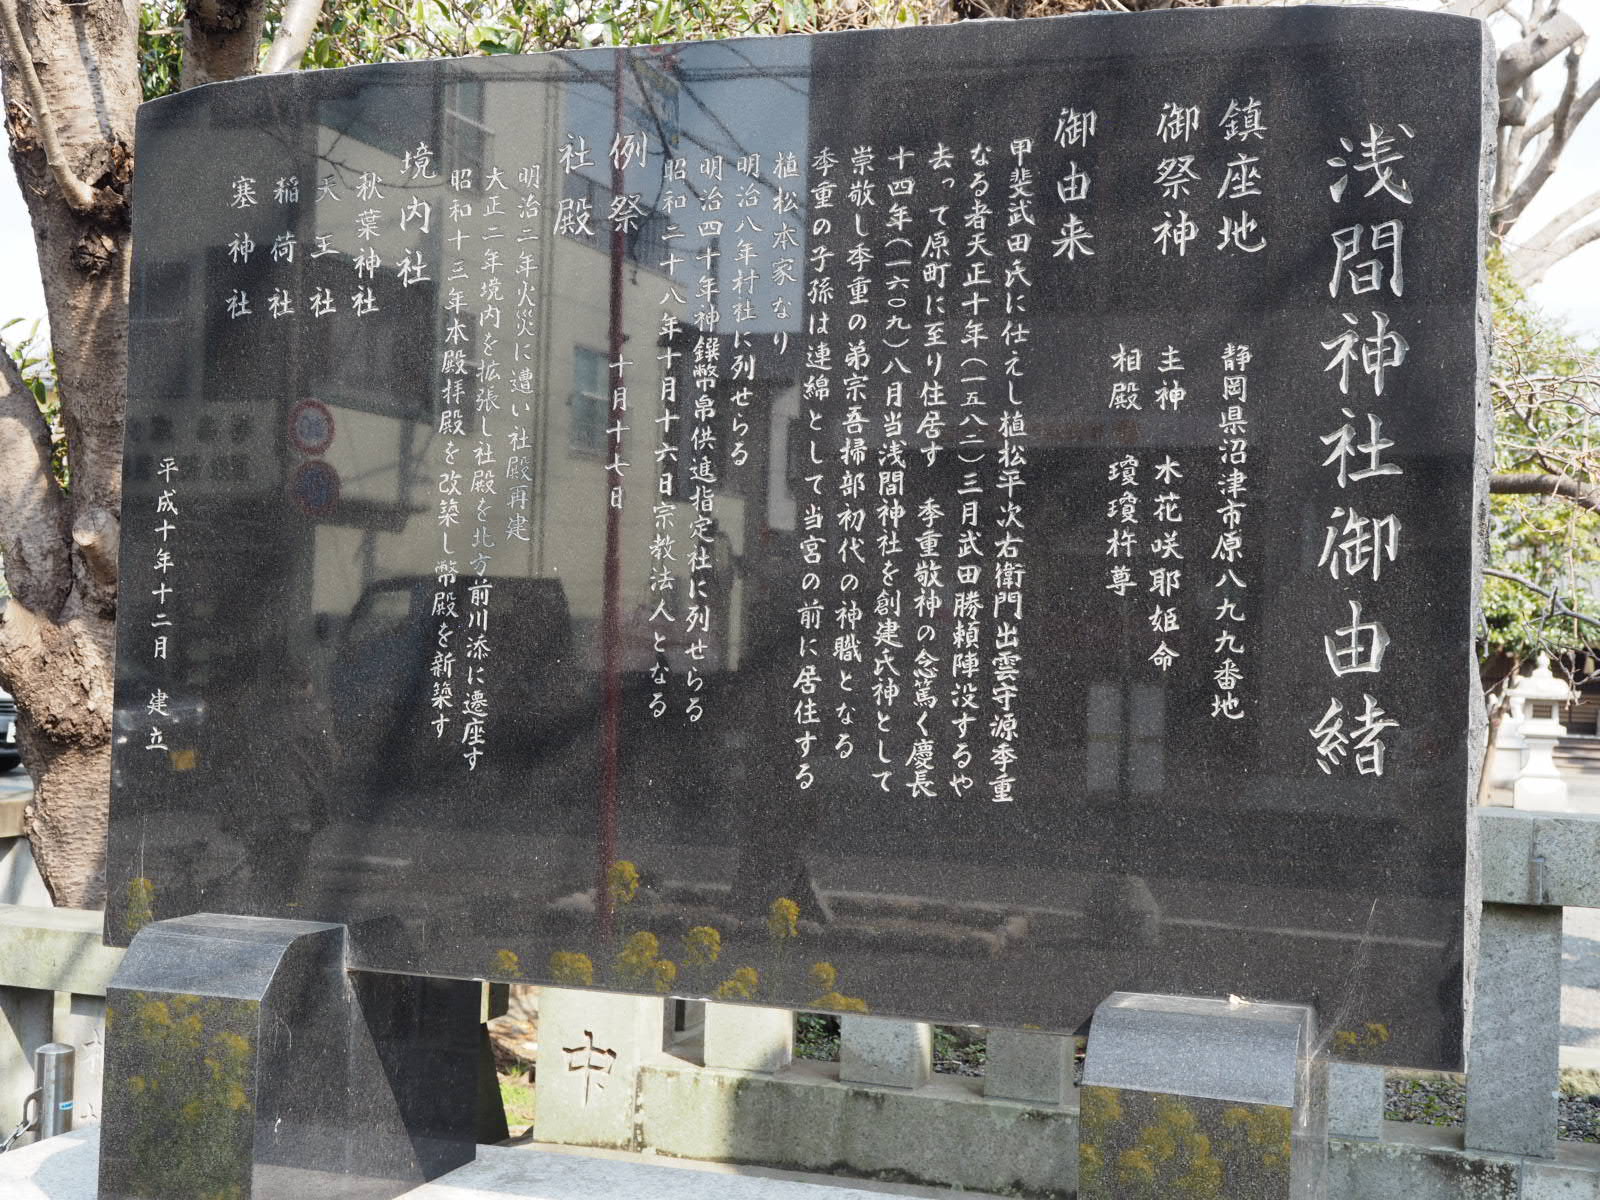 浅間神社御由緒
鎮座地　静岡県沼津市原八九九番地
御祭神　主神　木花咲耶姫命
相殿　瓊瓊杵尊
御由来
甲斐武田氏に仕えし植松平次右衛門出雲守源季重
なる者天正十年（一五八二）三月武田勝頼陣没するや
去って原町に至り住居す　季重敬神の念篤く慶長
十四年（一六〇九）八月当浅間神社を創建氏神として
崇敬し季重の弟宗吾掃部初代の神職となる
季重の子孫は連綿として当宮の前に居住する
植松本家なり
明治八年村社に列せらる
明治四十年神饌幣帛供進指定社に列せらる
昭和二十八年十月十六日宗教法人となる
例祭　十月十七日
社殿
明治二年火災に遭い社殿再建
大正二年境内を拡張し社殿を北方前川添に遷座す
昭和十三年本殿拝殿を改築し幣殿を新築す
境内社
秋葉神社
天王社
稲荷社
塞神社
平成十年十二月　建立
中